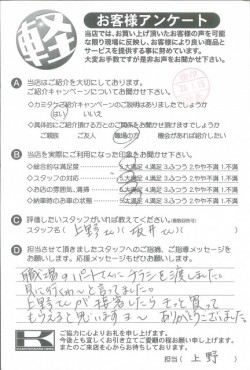 軽
お客様アンケート
当店では、お買い上げ頂いたお客様の声を可能
な限り現場に反映し、お客様により良い商品と
サービスを提供する事に努めています。
大変お手数ですが是非お声をお聞かせ下さい。
A 当店はご紹介を大切にしております。
ご紹介キャンペーンについてお聞かせ下さい。
◇カミタウンご紹介キャンペーンのご説明はありましたでしょうか
はい いいえ
◇具体的にご紹介頂ける方とのご関係をお聞かせ頂けますでしょうか
ご親族 ご友人 職場の方 機会があれば紹介したい
B 当店を実際にご利用になった印象をお聞かせ下さい。
◇総合的な満足度 5.大満足 4.満足 3.ふつう 2.やや不満 1.不満
◇スタッフの対応 5.大満足 4.満足 3.ふつう 2.やや不満 1.不満
◇お店の雰囲気、清掃 5.大満足 4.満足 3.ふつう 2.やや不満 1.不満
◇納車時のお車の状態 5.大満足 4.満足 3.ふつう 2.やや不満 1.不満
C 評価したいスタッフがいれば教えてください。(複数回答可)
スタッフ名( 上野さん )( 坂井さん )
D 担当させて頂きましたスタッフへのご指摘、ご指導メッセージを
お願いします。応援メッセージもぜひお願いします。
職場のパートさんにチラシを渡しました。
見に行くわ〜と言ってました。
上野さんが接客したらきっと買って
もらえると思います ありがとうございました。
K
ご協力に心よりお礼を申し上げます。
今後とも宜しくお引き立てご愛顧の程お願い申し上げます。
またのご来店を心からお待ちしております。
担当( 上野 )